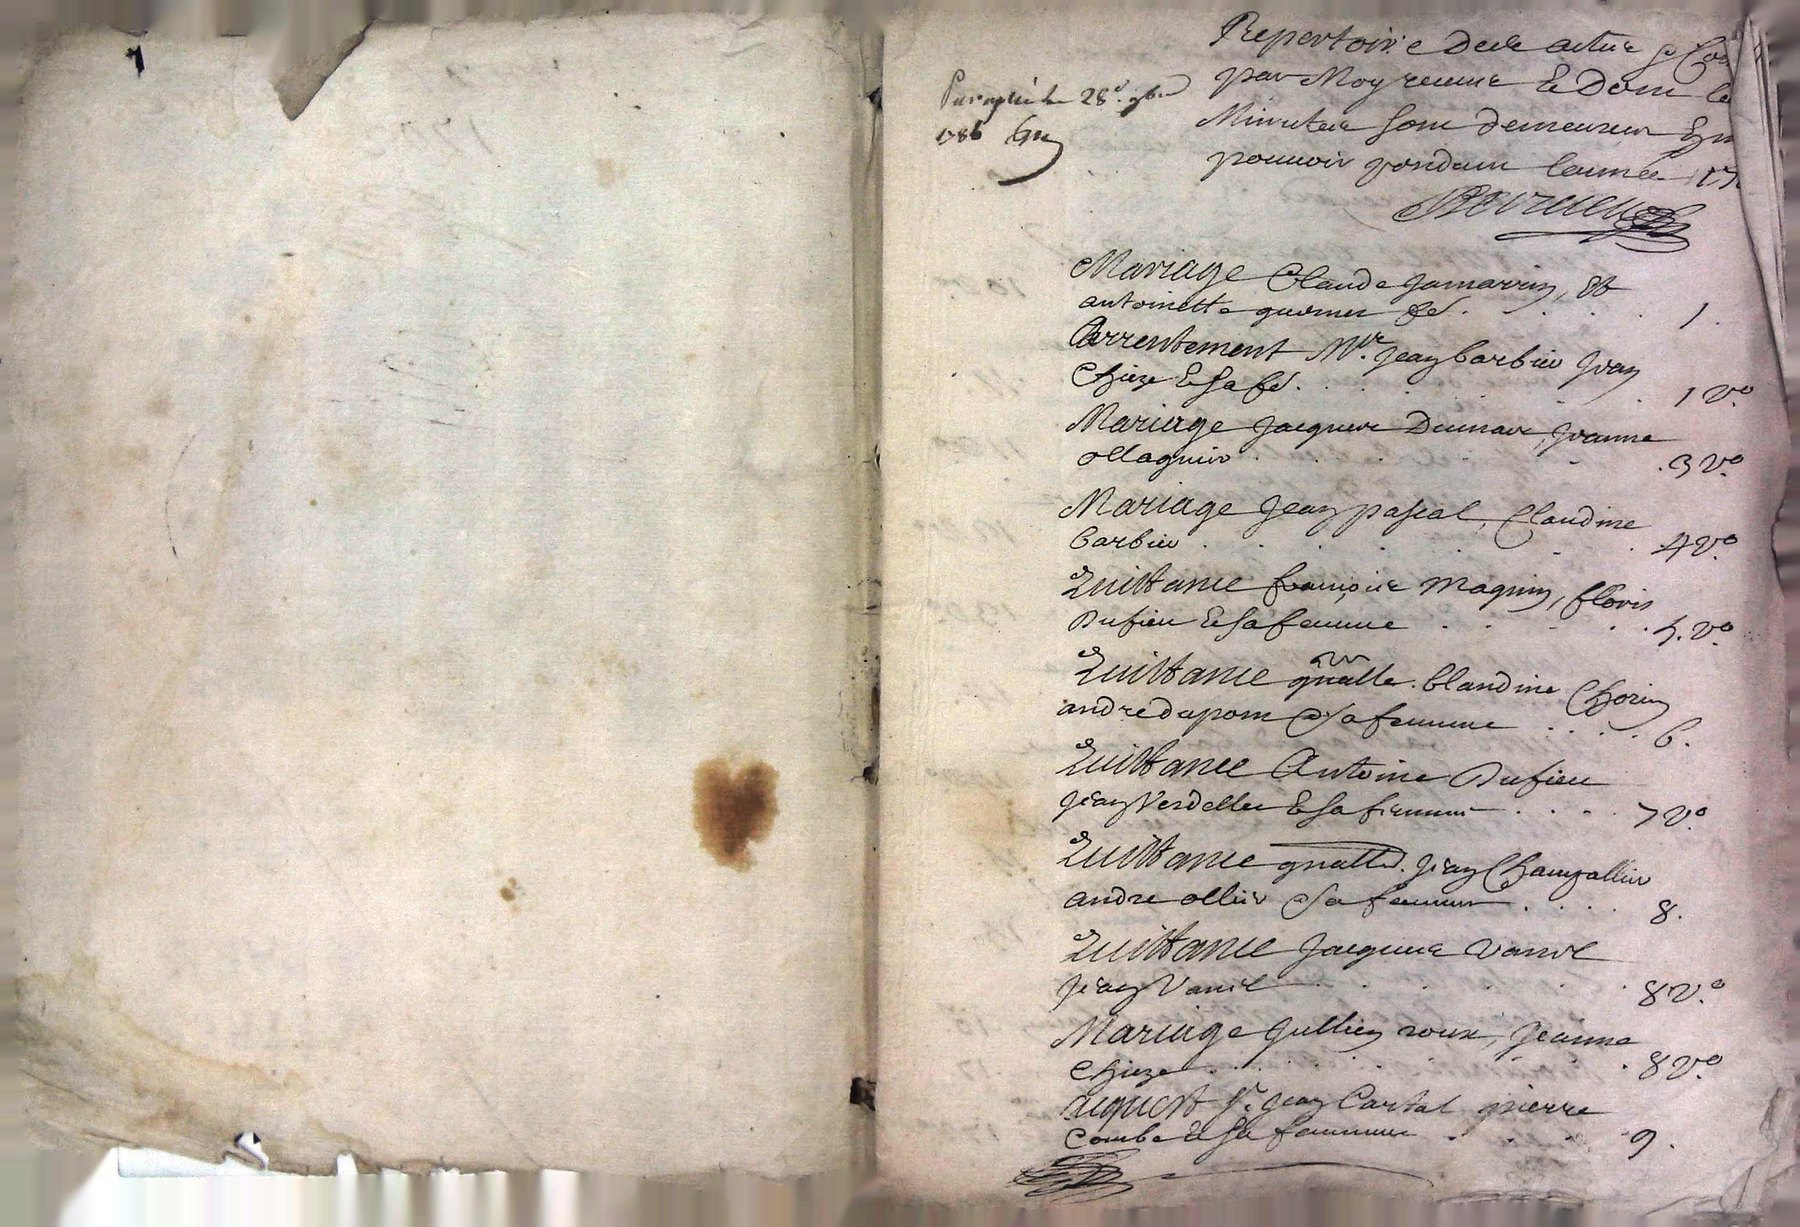 Repertoire Des actes
Paraphé le 28e 9bre
par Moy receus & Dont le
1786
Minutes sont demeurées En
pouvoir pendant l'année 17
Mariage Claude Jamarrin, Et
antoinette fé. 1.
Arrentement Mre. Jean barbier Jean
Chieze & sa fé. 1 Vo.
Mariage Jacques Dumas, Jeanne
ollagnier 3 Vo.
Mariage Jean pascal, Claudine
barbier 4 Vo.
Quittance françois Magnin, floris
Dufieu & sa femme 5. Vo
Quittance gnalle. blandine Chorin
andre dupont & sa femme 6.
Quittance Antoine Dufieu
Jean Verdellet & sa femme 7 Vo.
Quittance gnalle. Jean Champallier
andre ollier & sa femme 8.
Quittance Jacques Vanel
Jean Vanel 8 Vo.
Mariage Jullien roux, Jeanne
Chieze 8 Vo.
acquest Sr. Jean Cartal pierre
Combe & sa femme 9.